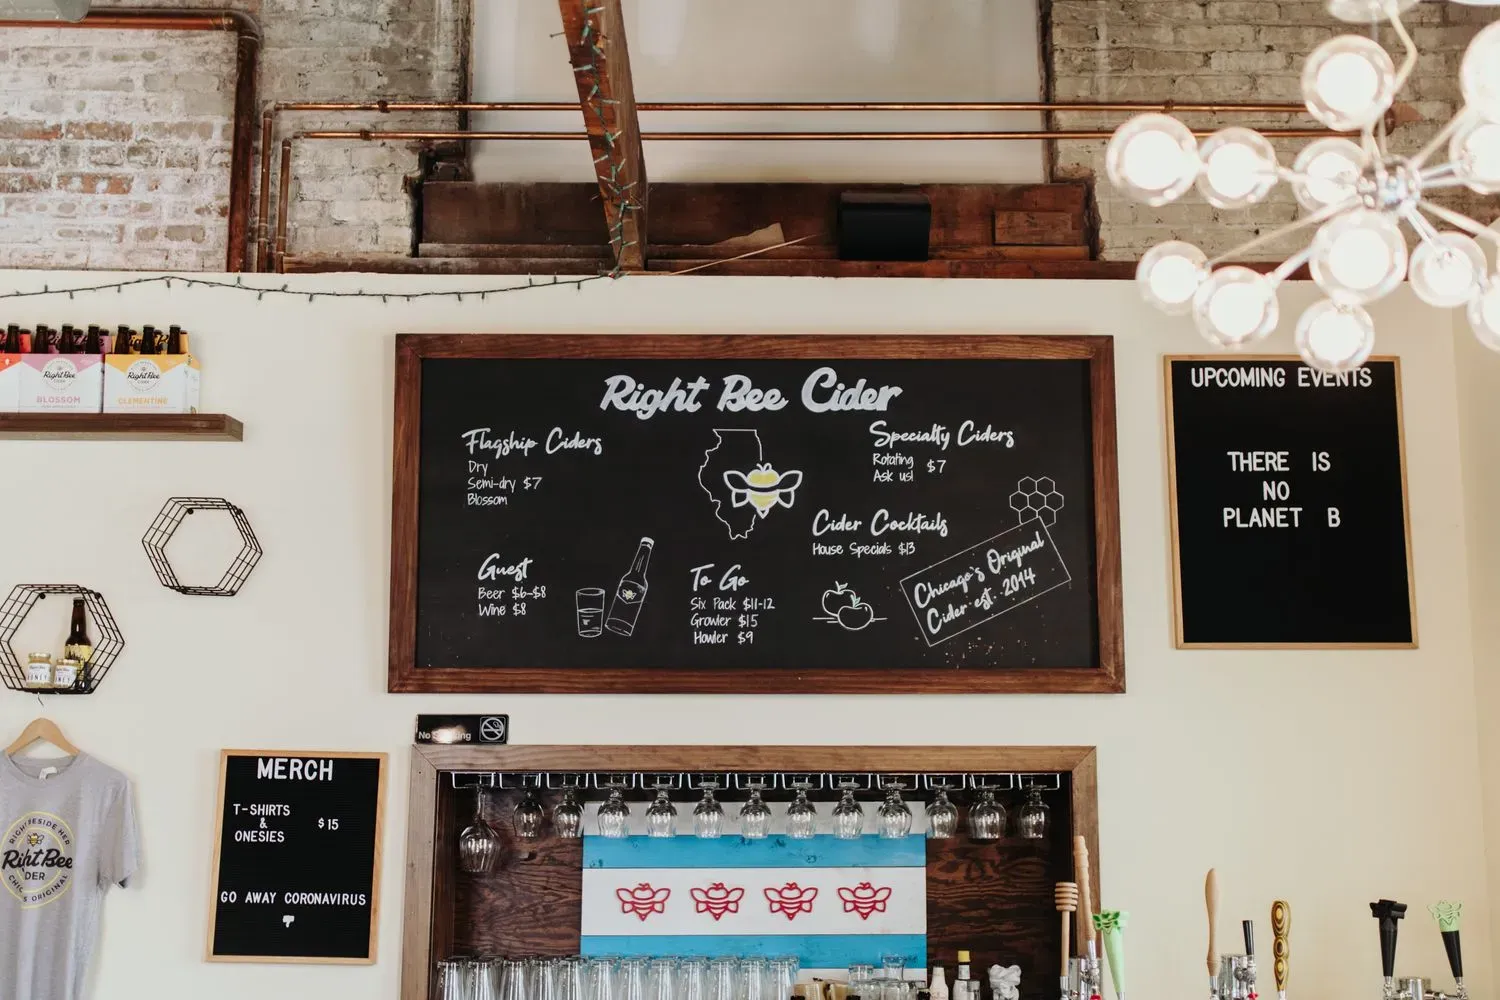 Right Bee Cider
Flagship Ciders
Dry
Semi-dry $7
Blossom
Specialty Ciders
Rotating
Ask us! $7
Cider Cocktails
House Specials $13
Guest
Beer $6-$8
Wine $8
To Go
Six Pack $11-12
Growler $15
Howler $9
Chicago's Original
Cider est. 2014
UPCOMING EVENTS
THERE IS
NO
PLANET B
Right Bee
CIDER
BLOSSOM
Right Bee
CIDER
CLEMENTINE
No Smoking
MERCH
T-SHIRTS
&
ONESIES
$15
GO AWAY CORONAVIRUS
Right Bee